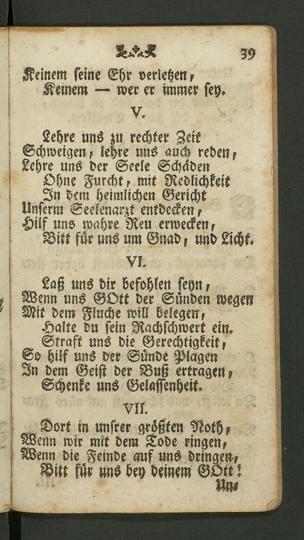 39
Keinem seine Ehr verletzen,
Keinem — wer er immer sey.
V.
Lehre uns zu rechter Zeit
Schweigen, lehre uns auch reden,
Lehre uns der Seele Schäden
Ohne Furcht, mit Redlichkeit
In dem heimlichen Gericht
Unserm Seelenarzt entdecken,
Hilf uns wahre Reu erwecken,
Bitt für uns um Gnad, und Licht.
VI.
Laß uns dir befohlen seyn,
Wenn uns GOtt der Sünden wegen
Mit dem Fluche will belegen,
Halte du sein Rachschwert ein.
Straft uns die Gerechtigkeit,
So hilf uns der Sünde Plagen
In dem Geist der Buß ertragen,
Schenke uns Gelassenheit.
VII.
Dort in unsrer größten Noth,
Wenn wir mit dem Tode ringen,
Wenn die Feinde auf uns dringen,
Bitt für uns bey deinem GOtt!
Un-